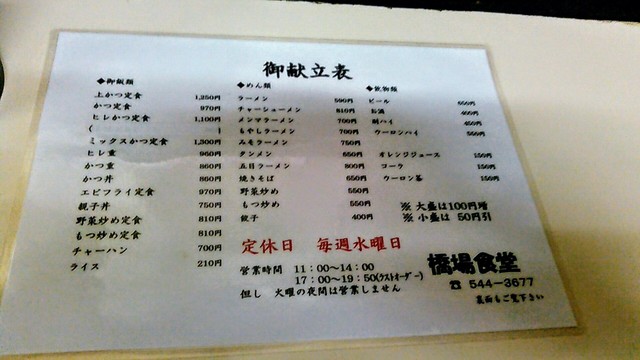 御献立表
◆御飯類
上かつ定食 1,250円
かつ定食 970円
ヒレかつ定食 1,100円
( )
ミックスかつ定食 1,300円
ヒレ重 960円
かつ重 860円
かつ丼 860円
エビフライ定食 970円
親子丼 750円
野菜炒め定食 810円
もつ炒め定食 810円
チャーハン 700円
ライス 210円
◆めん類
ラーメン 590円
チャーシューメン 810円
メンマラーメン 700円
もやしラーメン 700円
みそラーメン 750円
タンメン 650円
五目ラーメン 800円
焼きそば 650円
野菜炒め 550円
もつ炒め 550円
餃子 400円
◆飲物類
ビール
お酒
酎ハイ
ウーロンハイ
オレンジジュース 150円
コーラ 150円
ウーロン茶 150円
※ 大盛は100円増
※ 小盛は 50円引
定休日 毎週水曜日
営業時間 11:00~14:00
17:00~19:50(ラストオーダー)
但し 火曜の夜間は営業しません
橋場食堂
☎ 544-3677
裏面もご覧下さい